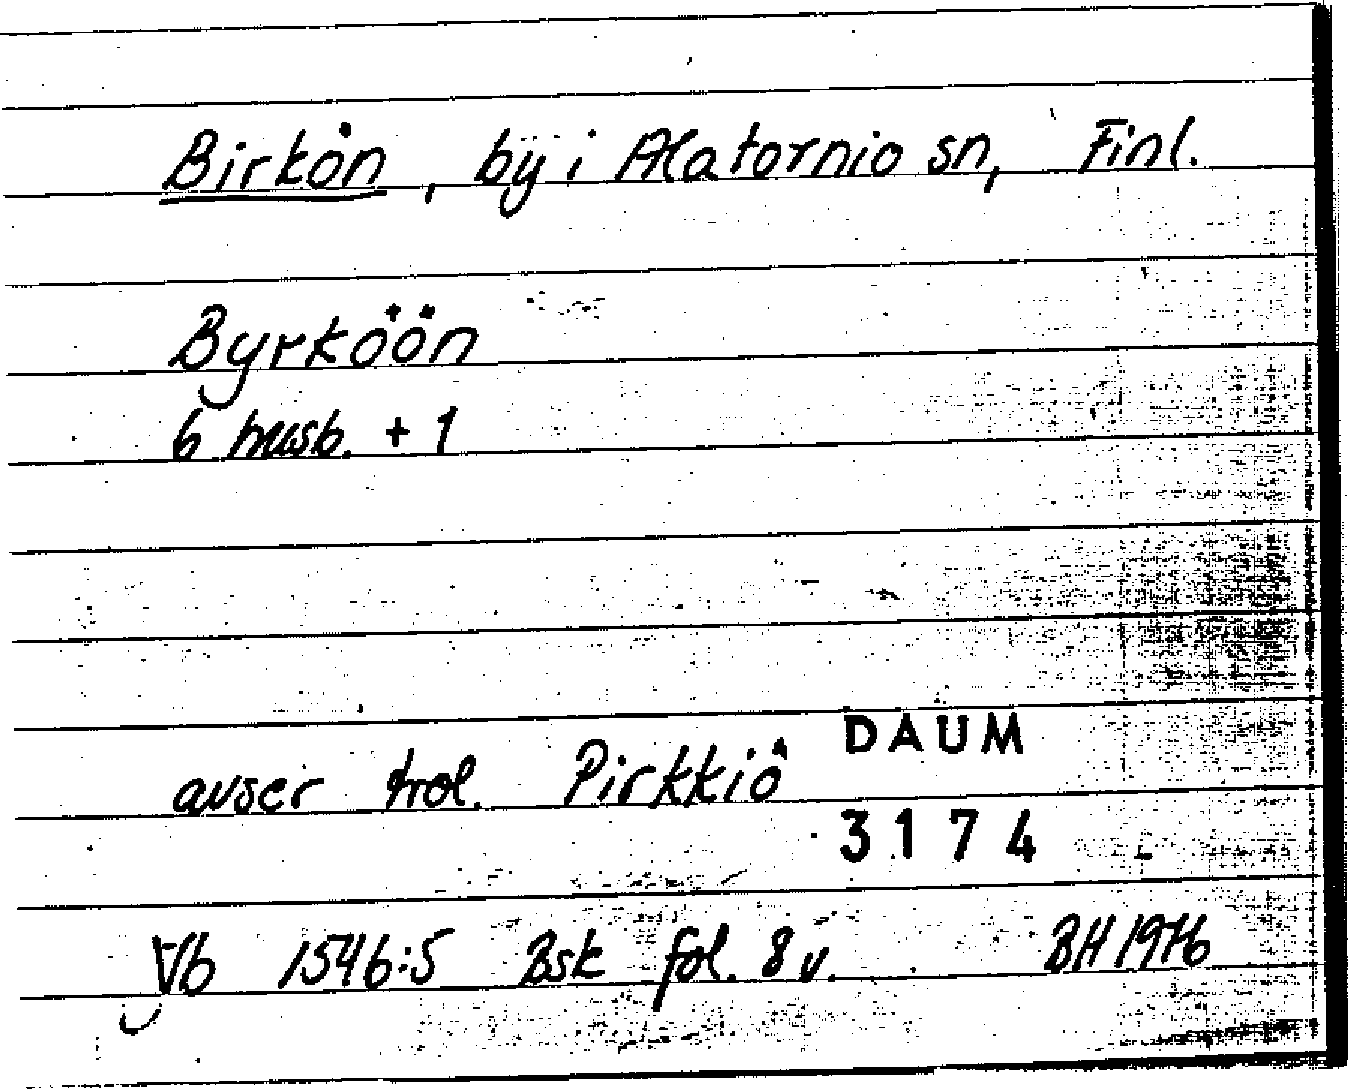 Birkön, by i Alatornio sn, Finl.
Byrköön
6 husb. + 1
DAUM
avser trol. Pirkkiö
3174
Vb 1546:5 Bsk fol. 8 v. BH 1976